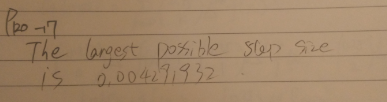 Pro → 7
The largest possible step size
is 0,00429,932